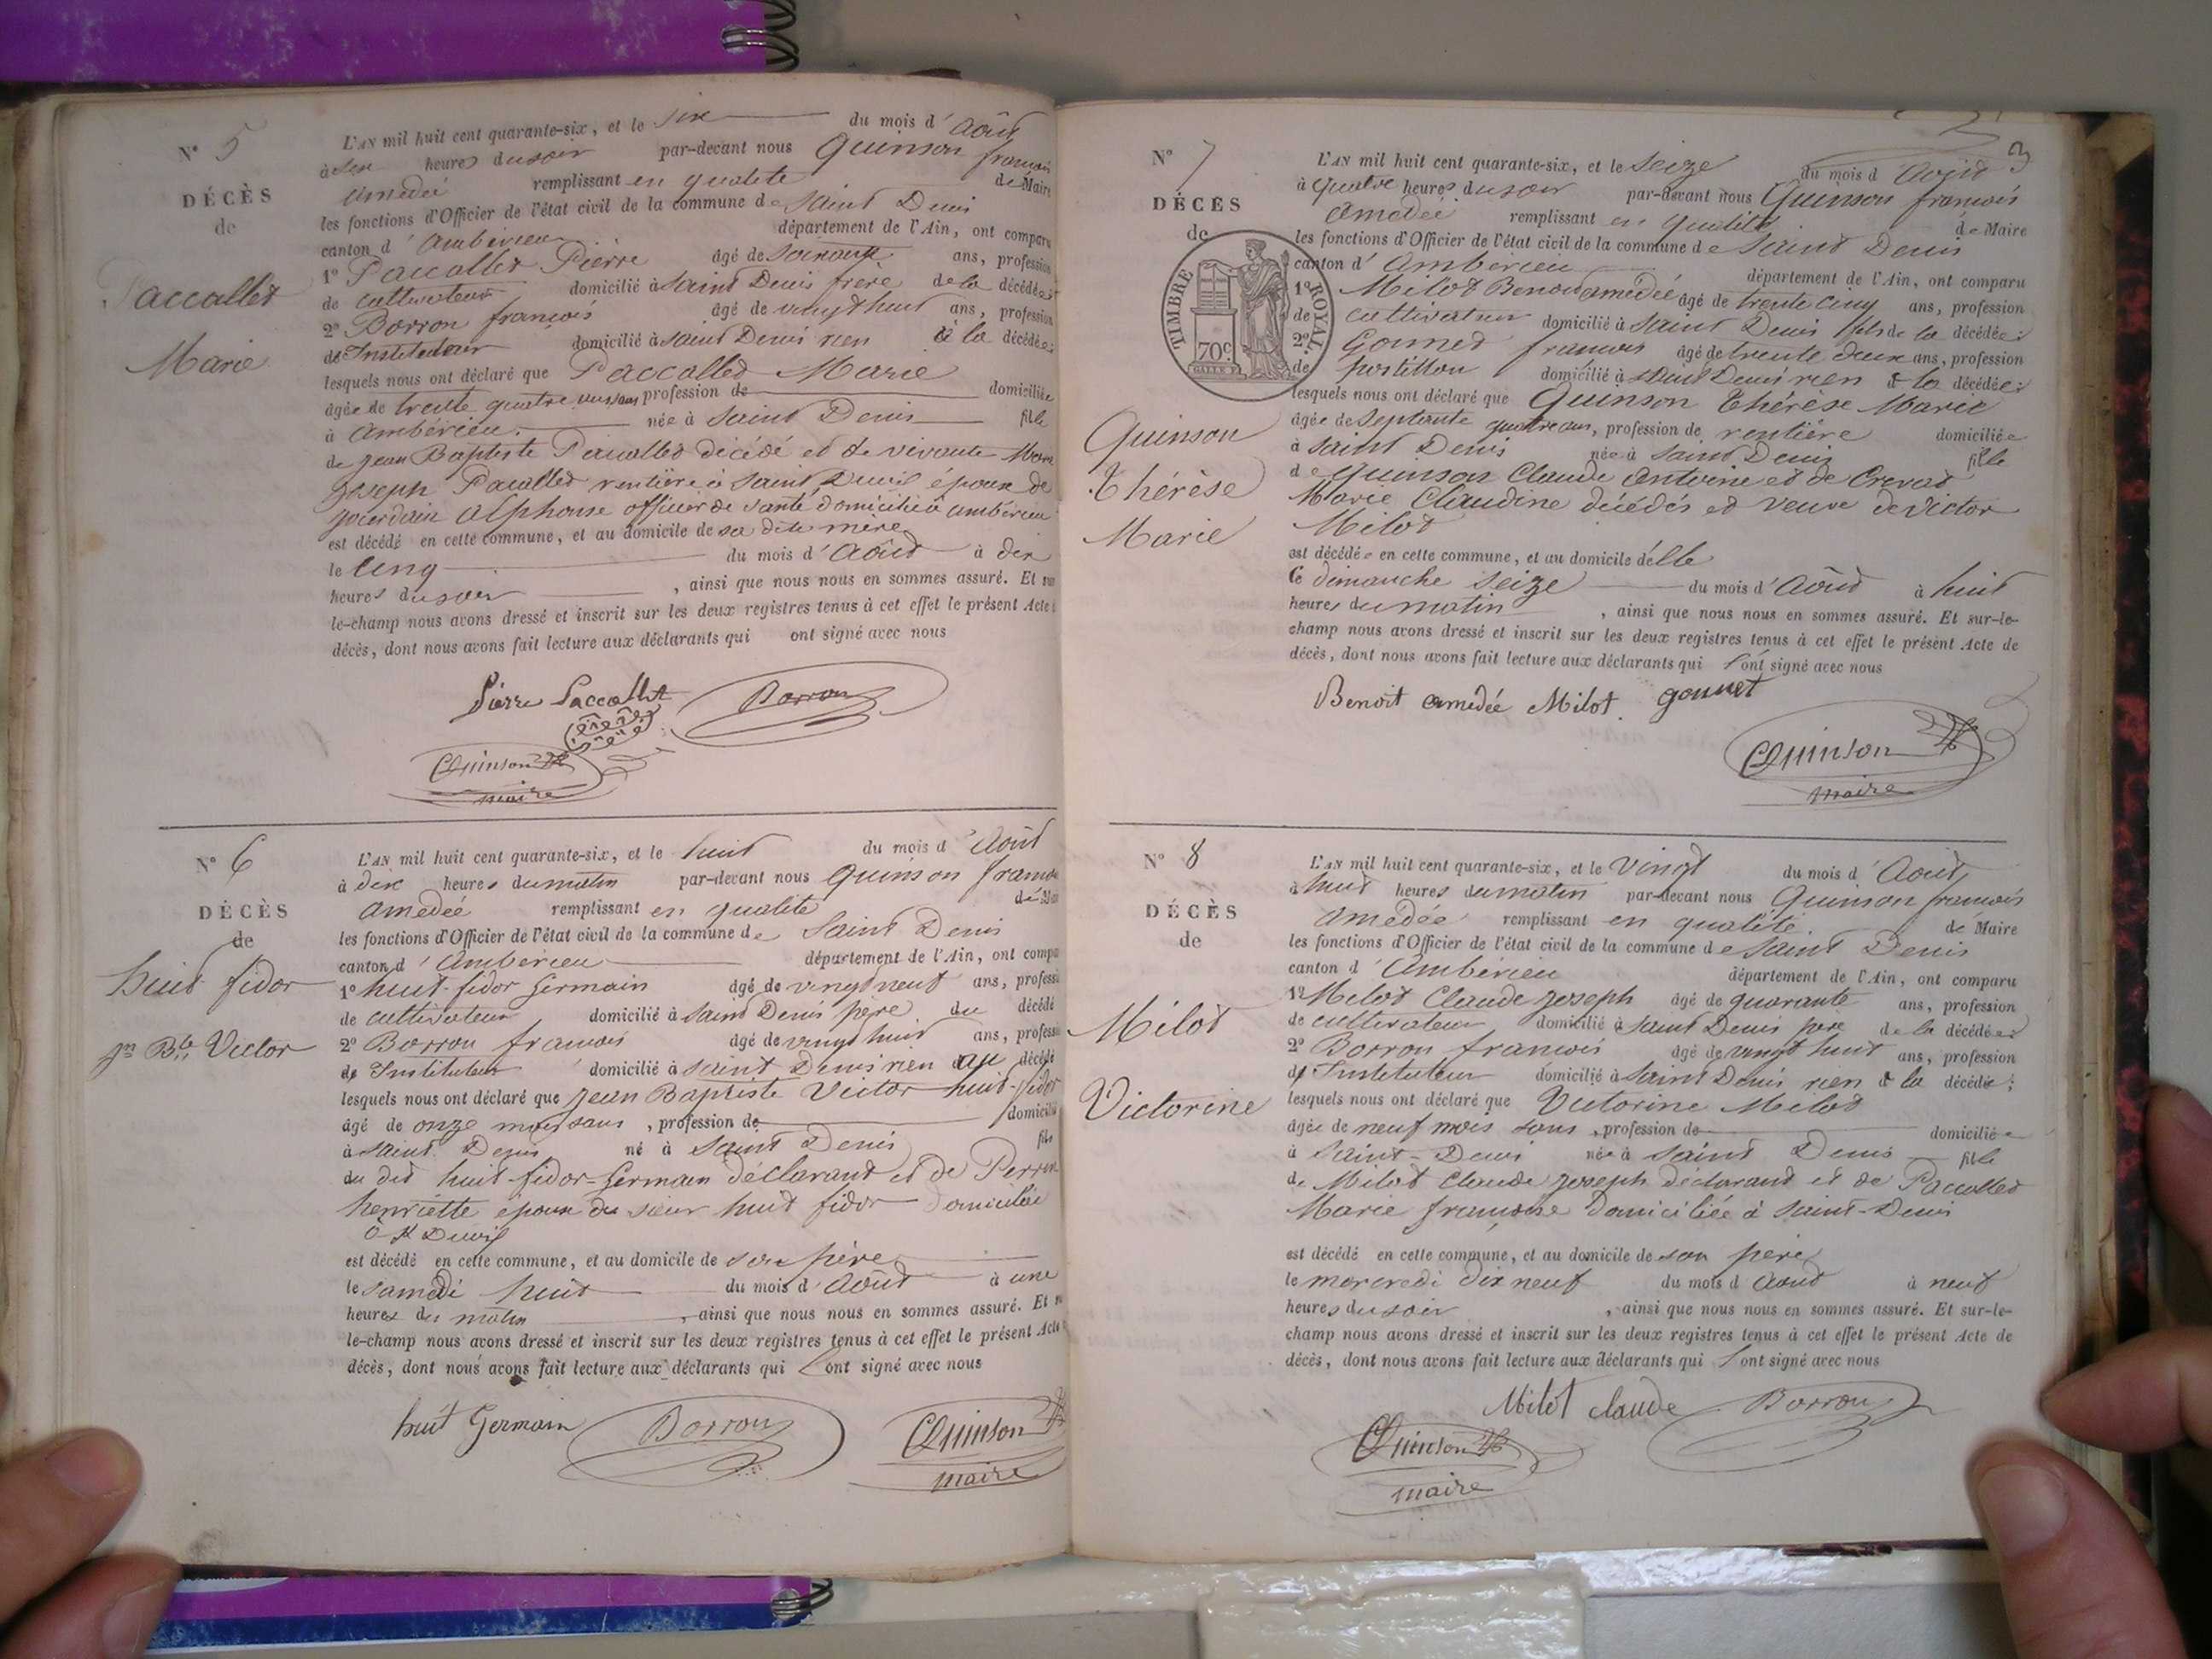 N° 5
DÉCÈS
de
Paccallet
Marie
L'AN mil huit cent quarante-six, et le six du mois d'Août
à six heures du soir par-devant nous Quinson françois
amedée remplissant en qualité de Maire
les fonctions d'Officier de l'état civil de la commune de Saint Denis
canton d'Ambérieu département de l'Ain, ont comparu
1° Paccallet Pierre âgé de soixante ans, profession
de cultivateur domicilié à Saint Denis frère de la décédée
2° Borron françois âgé de vingt huit ans, profession
de Instituteur domicilié à Saint Denis rien à la décédée
lesquels nous ont déclaré que Paccallet Marie
âgée de trente quatre ans profession de domiciliée
à Ambérieu née à Saint Denis fille
de Jean Baptiste Paccallet décédé et de vivante Marie
Joseph Paccallet rentière à Saint Denis épouse de
Jourdain Alphonse officier de santé domicilié à Ambérieu
est décédé en cette commune, et au domicile de sa dite mère
le cinq du mois d'Août à dix
heures du soir , ainsi que nous nous en sommes assuré. Et sur
le-champ nous avons dressé et inscrit sur les deux registres tenus à cet effet le présent Acte
décès, dont nous avons fait lecture aux déclarants qui ont signé avec nous
Pierre Paccallet Borron
Quinson
maire
N° 6
DÉCÈS
de
huit fidor
Jn Bte Victor
L'AN mil huit cent quarante-six, et le huit du mois d'Août
à dix heures du matin par-devant nous Quinson franço
Amedée remplissant en qualité de Mai
les fonctions d'Officier de l'état civil de la commune de Saint Denis
canton d'Ambérieu département de l'Ain, ont compa
1° huit-fidor Germain âgé de vingt neuf ans, professi
de cultivateur domicilié à Saint Denis père du décédé
2° Borron françois âgé de vingt huit ans, profess
de Instituteur domicilié à Saint Denis rien au décédé
lesquels nous ont déclaré que Jean Baptiste Victor huit-fidor
âgé de onze mois sans , profession de domicilié
à Saint Denis né à Saint Denis fils
du dit huit fidor=Germain déclarant et de Perrin
henriette épouse du sieur huit fidor domiciliée
à St Denis
est décédé en cette commune, et au domicile de son père
le samedi huit du mois d'Août à une
heures du matin , ainsi que nous nous en sommes assuré. Et
le-champ nous avons dressé et inscrit sur les deux registres tenus à cet effet le présent Acte
décès, dont nous avons fait lecture aux déclarants qui ont signé avec nous
huit Germain Borron Quinson
maire
3
N° 7
DÉCÈS
de
TIMBRE ROYAL
70c
Quinson
Thérèse
Marie
L'AN mil huit cent quarante-six, et le Seize du mois d'Août
à quatre heures du soir par-devant nous Quinson françois
Amedée remplissant en qualité de Maire
les fonctions d'Officier de l'état civil de la commune de Saint Denis
canton d'Ambérieu département de l'Ain, ont comparu
1° Milot Benoit amedée âgé de trente cinq ans, profession
de cultivateur domicilié à Saint Denis fils de la décédée:
2° Gonnet françois âgé de trente deux ans, profession
de postillon domicilié à Saint Denis rien à la décédée:
lesquels nous ont déclaré que Quinson Thérèse Marie
âgée de septante quatre ans, profession de rentière domiciliée
à Saint Denis née à Saint Denis fille
de Quinson Claude Antoine et de Crevat
Marie Claudine décédés et veuve de Victor
Milot
est décédée en cette commune, et au domicile d'elle
le dimanche seize du mois d'Août à huit
heures du matin , ainsi que nous nous en sommes assuré. Et sur-le-
champ nous avons dressé et inscrit sur les deux registres tenus à cet effet le présent Acte de
décès, dont nous avons fait lecture aux déclarants qui l'ont signé avec nous
Benoit amedée Milot. gonnet
Quinson
maire
N° 8
DÉCÈS
de
Milot
Victorine
L'AN mil huit cent quarante-six, et le vingt du mois d'Août
à huit heures du matin par-devant nous Quinson françois
Amedée remplissant en qualité de Maire
les fonctions d'Officier de l'état civil de la commune de Saint Denis
canton d'Ambérieu département de l'Ain, ont comparu
1° Milot Claude Joseph âgé de quarante ans, profession
de cultivateur domicilié à Saint Denis père de la décédée
2° Borron françois âgé de vingt huit ans, profession
de Instituteur domicilié à Saint Denis rien à la décédée;
lesquels nous ont déclaré que Victorine Milot
âgée de neuf mois sans , profession de domiciliée
à Saint-Denis née à Saint Denis fille
de Milot Claude Joseph déclarant et de Paccallet
Marie françoise domiciliée à Saint-Denis
est décédé en cette commune, et au domicile de son père
le mercredi dix neuf du mois d'Août à neuf
heures du soir , ainsi que nous nous en sommes assuré. Et sur-le-
champ nous avons dressé et inscrit sur les deux registres tenus à cet effet le présent Acte de
décès, dont nous avons fait lecture aux déclarants qui l'ont signé avec nous
Milot claude Borron
Quinson
maire